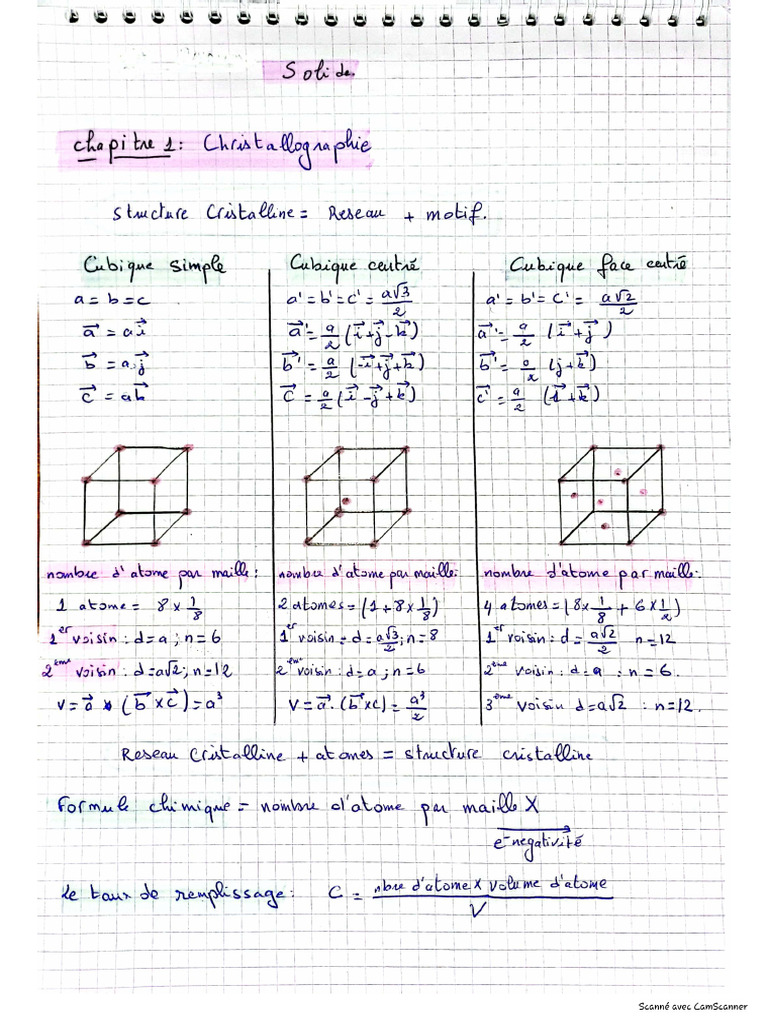 Solide.
chapitre 1: Christallographie
Structure Cristalline = Reseau + motif.
Cubique simple
a = b = c
a⃗ = a i⃗
b⃗ = a j⃗
c⃗ = a k⃗
nombre d'atome par maille:
1 atome = 8 × 1/8
1er voisin : d = a ; n = 6
2ème voisin : d = a√2 ; n = 12
V = a⃗ • (b⃗ × c⃗) = a³
Cubique centré
a' = b' = c' = a√3/2
a⃗' = a/2 (i⃗ + j⃗ - k⃗)
b⃗' = a/2 (-i⃗ + j⃗ + k⃗)
c⃗ = a/2 (i⃗ - j⃗ + k⃗)
nombre d'atome par maille:
2 atomes = (1 + 8 × 1/8)
1er voisin = d = a√3/2 ; n = 8
2ème voisin : d = a ; n = 6
V = a⃗ . (b⃗ × c) = a³/2
Cubique face centré
a' = b' = c' = a√2/2
a⃗' = a/2 (i⃗ + j⃗)
b⃗' = a/2 (j + k⃗)
c⃗' = a/2 (i⃗ + k⃗)
nombre d'atome par maille:
4 atomes = (8 × 1/8 + 6 × 1/2)
1er voisin : d = a√2/2 n = 12
2ème voisin : d = a : n = 6.
3ème voisin d = a√2 : n = 12.
Reseau Cristalline + atomes = structure cristalline
Formule chimique = nombre d'atome par maille X
e⁻negativité
le taux de remplissage: C = nbre d'atome × volume d'atome / V
Scanné avec CamScanner